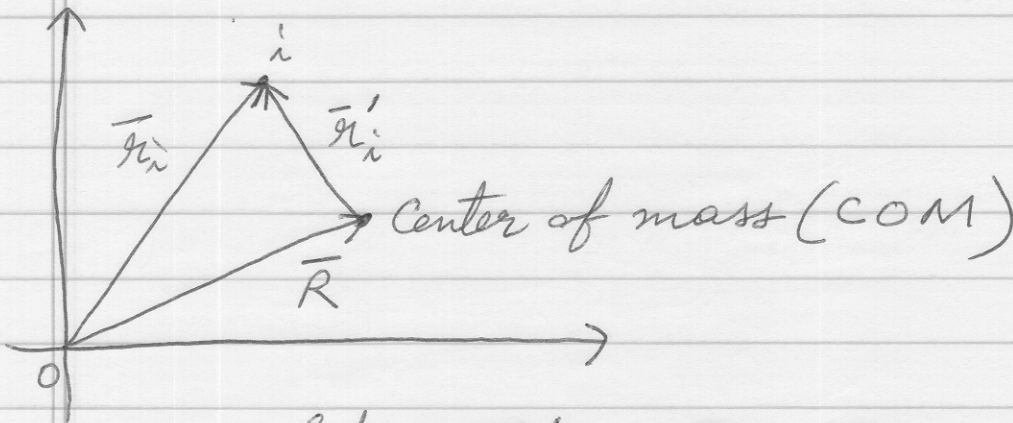 i
r̄ᵢ
r̄ᵢ′
Center of mass (COM)
R̄
O